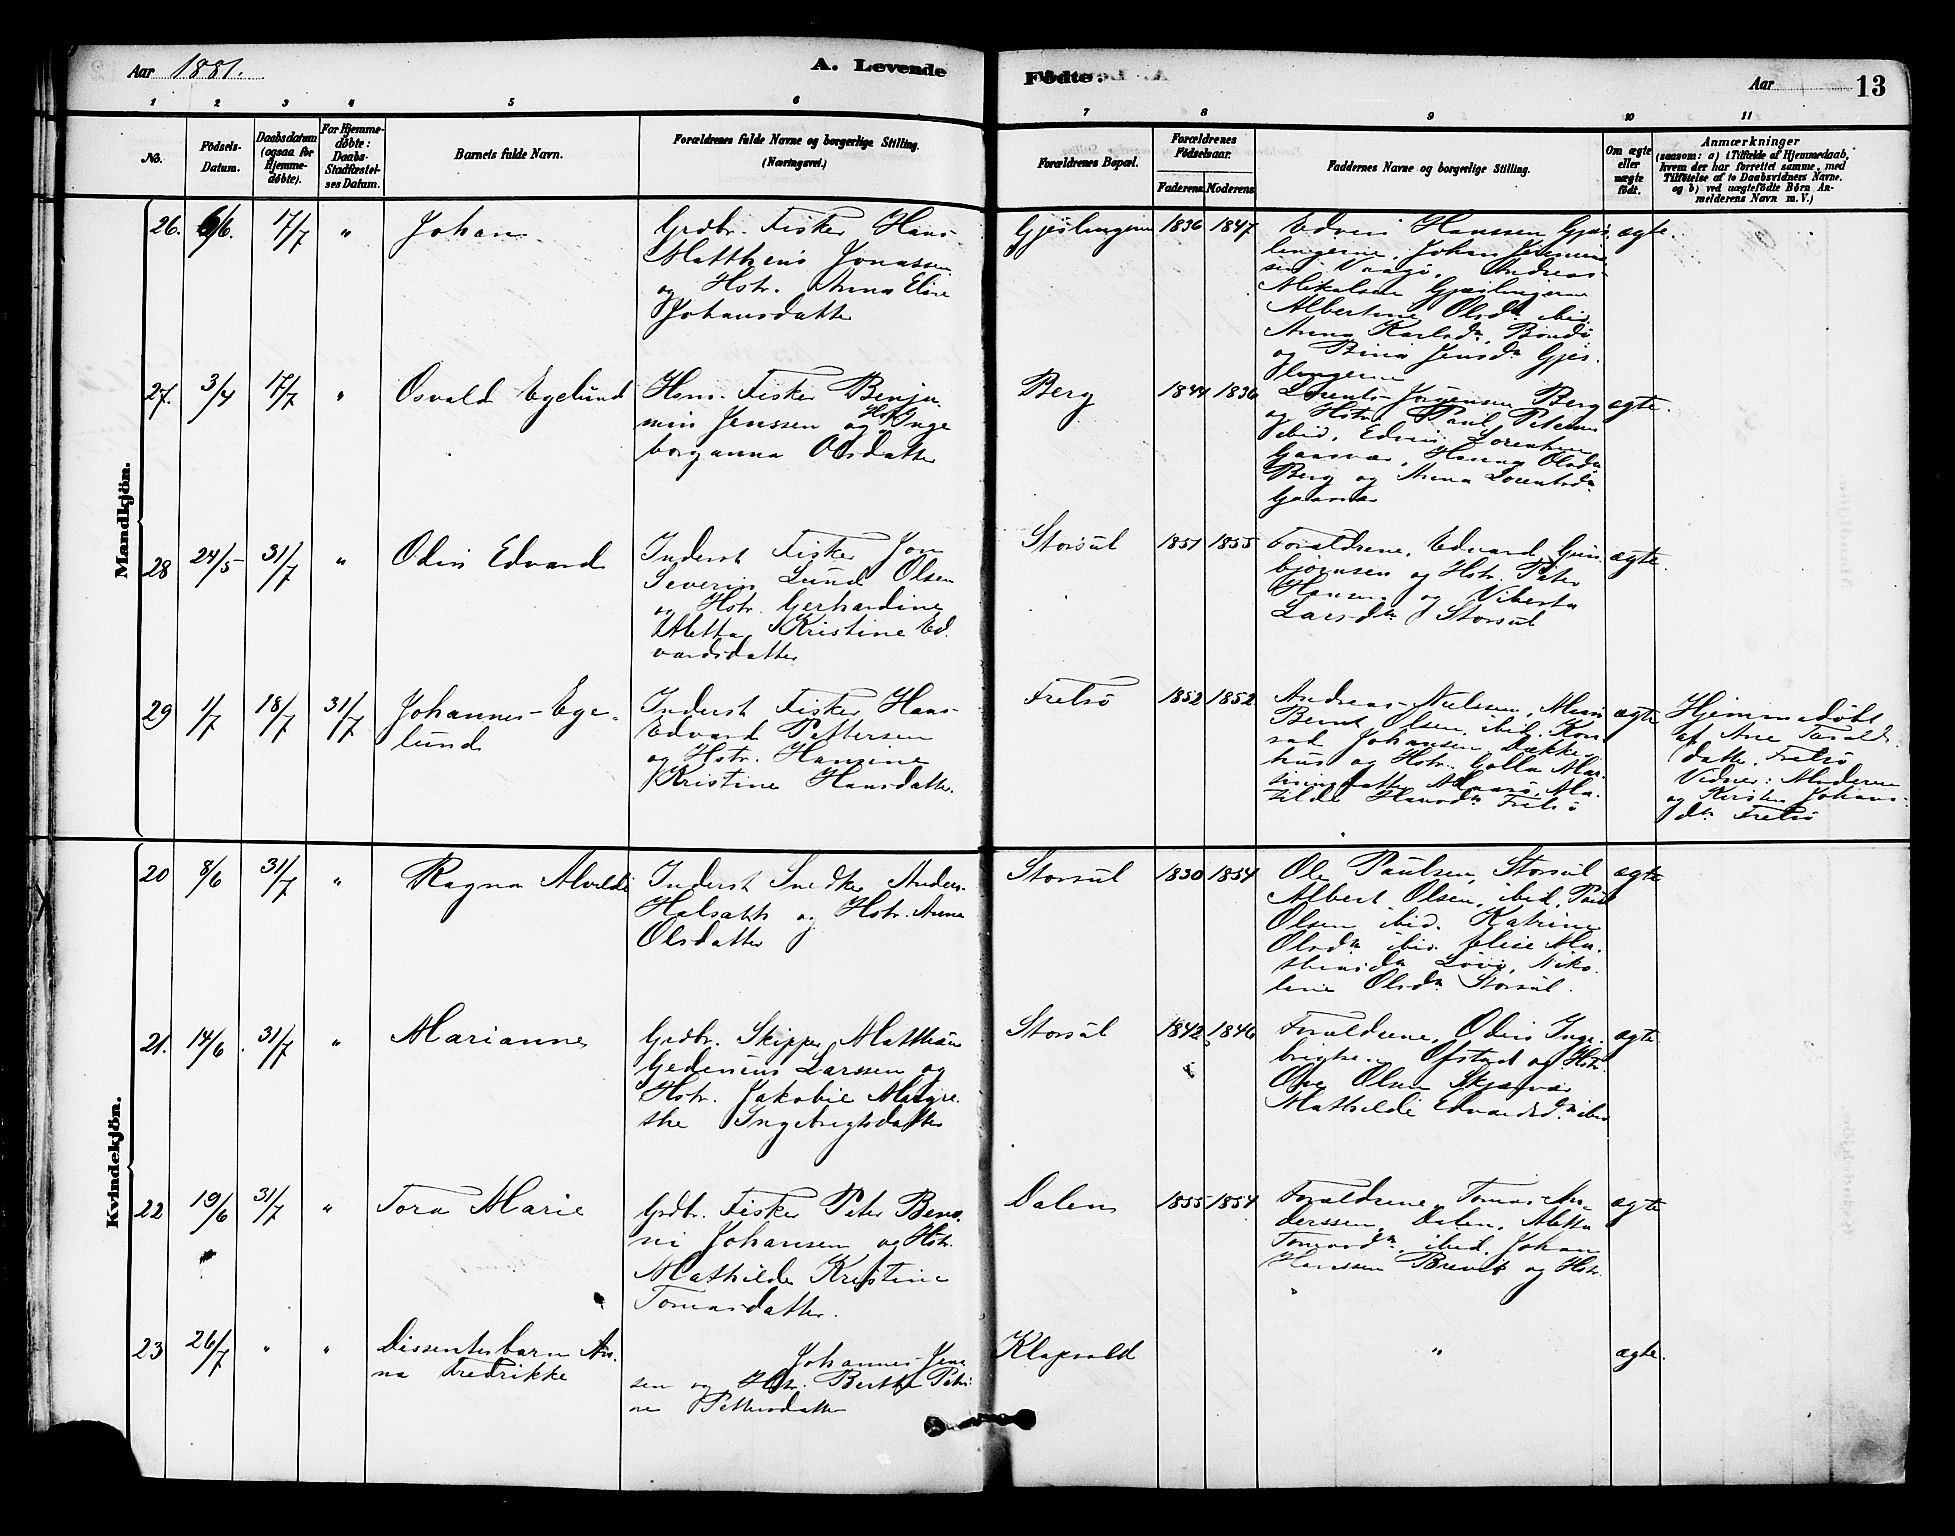 Aar 1881.
A. Levende
Fødte.
Aar
13
1 2 3 4 5 6 7 8 9 10 11
No.
Fødsels-
Datum.
Daabsdatum
(ogsaa for
Hjemme-
døbte).
For Hjemme-
døbte:
Daabs-
Stadfæstel-
ses Datum.
Barnets fulde Navn.
Forældrenes fulde Navne og borgerlige Stilling.
(Næringsvei.)
Forældrenes Bopæl.
Forældrenes
Fødselsaar.
Faderens. Moderens.
Faddernes Navne og borgerlige Stilling.
Om ægte
eller
uægte
født.
Anmærkninger
(saasom: a) i Tilfælde af Hjemmedaab,
hvem der har forrettet samme, med
Tilføielse af to Daabsvidners Navne.
og b) ved uægtefødte Børn An-
melderens Navn m. V.)
Mandkjön.
26. 6/6. 17/7 "
Johan.
Grdbr. Fisker Hans
Mattheus Jonassen
og Hstr. Anna Elise
Johansdatter
Gjæslingerne 1836 1847
Edvin Hanssen Gjæs-
lingerne, Johan
Vaagö, Andreas
Mikalsen Gjæslingerne
Albertine Olsdr ibid
Anna Karlsdr
og Bina Jensdr Gjæs-
lingerne
ægte.
27. 3/4 17/7 "
Osvald Egelund
Hsm. Fisker Benja-
min Jenssen og Hstr. Inge
borganna Olsdatter
Berg 1844 1836
Lorents Jörgensen Berg
og Hstr. Paul Petersen
ibid, Edvin Lorentsen
Gaasvær, Hanna Olsdr
Berg og Anna Lorentsdr
Gaasvær
ægte.
28 24/5 31/7 "
Odin Edvard
Inderst Fisker Jon
Severin Lund Olsen
og Hstr. Gerhardine
Aletta Kristine Ed-
vardsdatter
Storsül 1851 1855
Foraldrene, Edvard
björnsen og Hstr. Peter
Hansen og Viberta
Larsdr Storsül
ægte.
29 1/7 18/7 31/7
Johannes Ege-
lund
Inderst Fisker Hans
Edvard Pettersen
og Hstr. Hansine
Kristine Hansdatter.
Frelsö 1852 1852
Andreas Nielssen,
Bernt Olsen, ibid. Kon-
rad Johansen Dække-
hus og Hstr. Golla Mar-
Ma-
tilde Hansdr Frelsö
ægte
Hjemmedöbt
af Ane Taralds-
datter, Frelsö
Vidner: Moderen
og Kirsten Johans-
dr Frelsö
Kvindekjön.
20 8/6 31/7 "
Ragna Alvilde
Inderst Snedker Anders
Halsath og Hstr. Anna
Olsdatter
Storsül 1830 1854
Ole Paulsen, Storsül
Albert Olsen, ibid, Paul
Olsen ibid. Katrine
Olsdr ibid. Elise Ma-
thiasdr Lövö, Niko-
line Olsdr Storsül.
ægte
21. 14/6. 31/7 "
Marianne
Grdbr. Skipper Matthæus
Gedenius Larssen og
Hstr. Jakobie Margre-
the Ingebrigtsdatter
Storsül 1842 1846
Foraldrene, Odin Inge-
brigtsen Ofstad og Hstr.
Ove Olsen Skjærvær
Mathilde Edvardsd. ibid
ægte
22 19/6 31/7 "
Tora Marie
Grdbr. Fisker Peter Beno-
ni Johansen og Hstr.
Mathilde Kristine
Tomasdatter.
Dalen 1855 1854
Foraldrene, Tomas An-
derssen, Dalen, Aletta
Tomasdr. ibid. Johan
Hanssen Brevik og Hstr.
ægte
23 26/7 " "
Dissenterbarn An-
na Fredrikke
Johannes Jens-
sen og Hstr. Berthe Petri-
ne Pettersdatter
Klapvold
"
ægte.